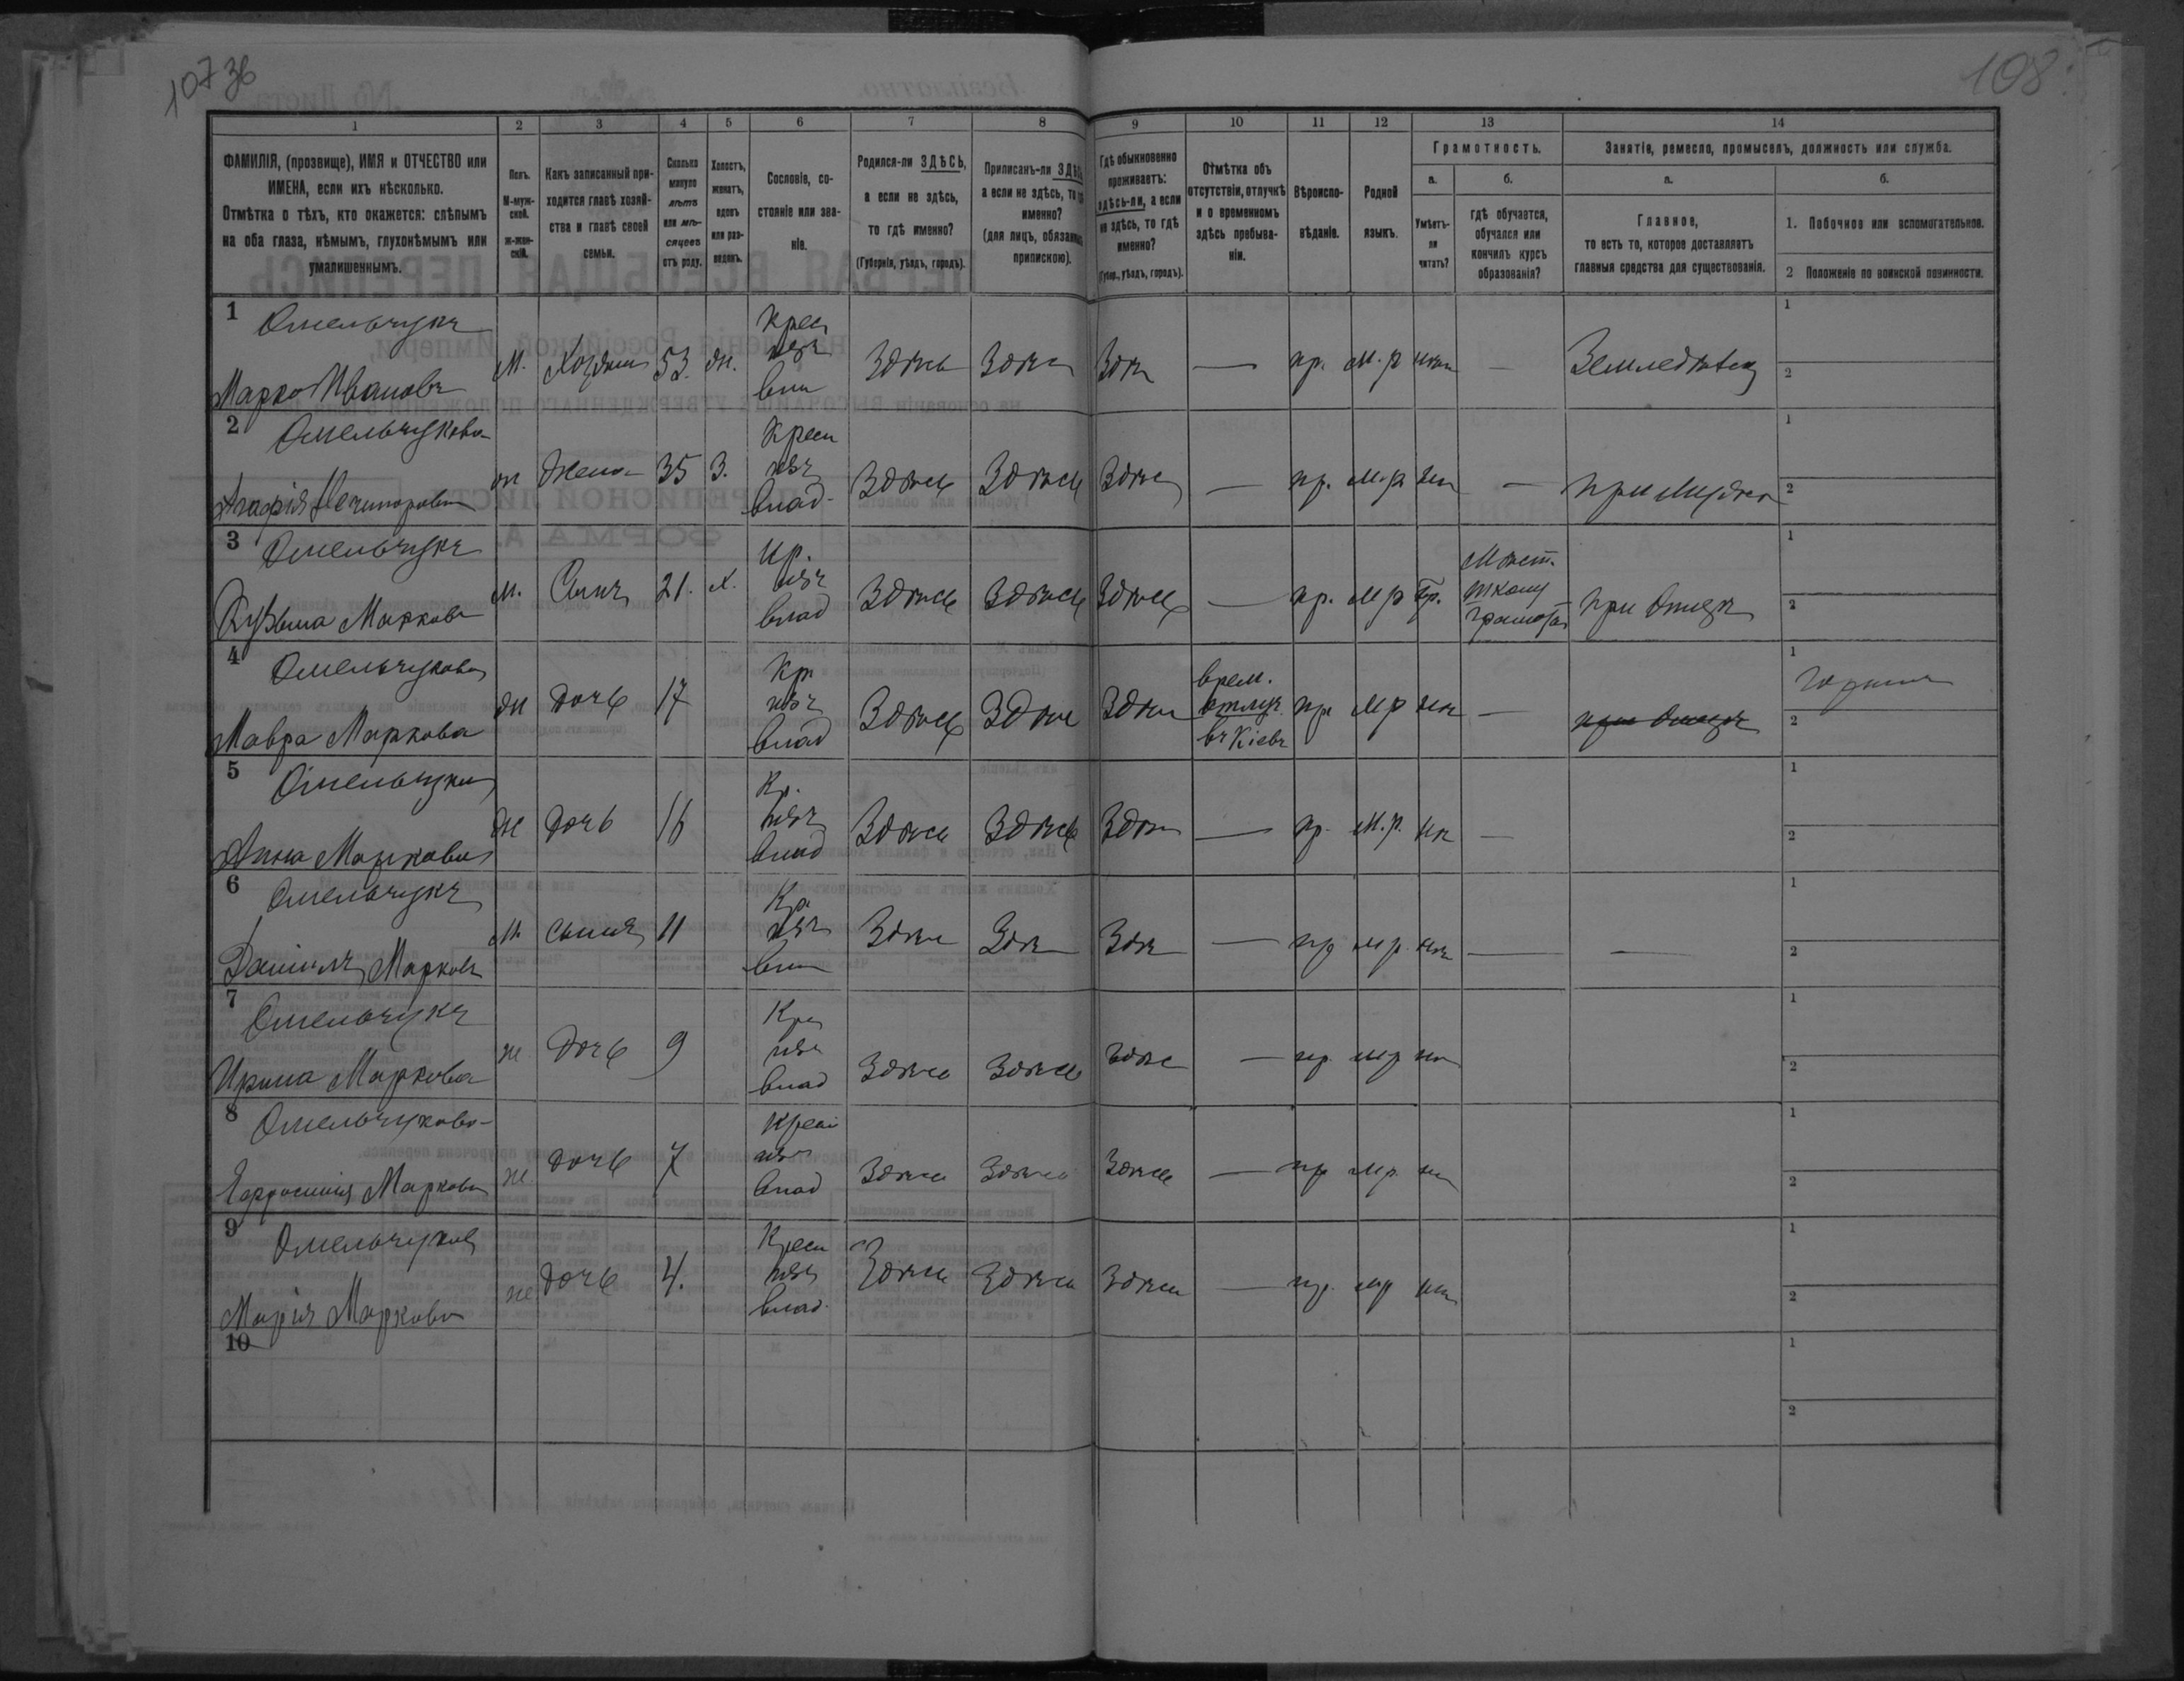 107 зв
108
1 2 3 4 5 6 7 8 9 10 11 12 13 14
ФАМИЛІЯ, (прозвище), ИМЯ и ОТЧЕСТВО или
ИМЕНА, если ихъ нѣсколько.
Отмѣтка о тѣхъ, кто окажется: слѣпымъ
на оба глаза, нѣмымъ, глухонѣмымъ или
умалишеннымъ.
Полъ.
М-муж-
ской.
ж-жен-
скій.
Какъ записанный при-
ходится главѣ хозяй-
ства и главѣ своей
семьи.
Сколько
минуло
лѣтъ
или мѣ-
сяцевъ
отъ роду.
Холостъ,
женатъ,
вдовъ
или раз-
веденъ.
Сословіе, со-
стояніе или зва-
ніе.
Родился-ли ЗДѢСЬ,
а если не здѣсь,
то гдѣ именно?
(Губернія, уѣздъ, городъ).
Приписанъ-ли ЗДѢСЬ
а если не здѣсь, то
именно?
(для лицъ, обязанныхъ
припискою).
Гдѣ обыкновенно
проживаетъ:
здѣсь-ли, а если
не здѣсь, то гдѣ
именно?
(Губер., уѣздъ, городъ).
Отмѣтка объ
отсутствіи, отлучкѣ
и о временномъ
здѣсь пребыва-
ніи.
Вѣроиспо-
вѣданіе.
Родной
языкъ.
Грамотность.
а.
Умѣетъ-
ли
читать?
б.
гдѣ обучается,
обучался или
кончилъ курсъ
образованія?
Занятіе, ремесло, промыселъ, должность или служба.
а.
Главное,
то есть то, которое доставляетъ
главныя средства для существованія.
б.
1. Побочное или вспомогательное.
2 Положеніе по воинской повинности.
1 Омельчукъ
Марко Ивановъ
М. Хозяинъ 53. ж. Крес
изъ
влад Здѣсь Здѣсь Здѣсь — пр. м.р нѣтъ — Земледѣлец
1
2
2 Омельчукова
Агафія Нечипорова
ж Жена 35 З. Крест
изъ
влад Здѣсь Здѣсь Здѣсь — пр. м.р нѣт — при мужѣ
1
2
3 Омельчукъ
Кузьма Марковъ
м. Сынъ 21. х. Кр.
изъ
влад Здѣсь Здѣсь Здѣсь — пр. мр Гр.
школу
грамоты при Отцѣ
1
2
4 Омельчукова
Мавра Маркова
ж Дочь 17 Кр
изъ
влад Здѣсь Здѣсь Здѣсь врем.
отлуч.
въ Кіевъ пр мр нѣт — при Отцѣ
1
2
5 Омельчукова
Анна Маркова
ж Дочь 16 Кр.
изъ
влад Здѣсь Здѣсь Здѣсь — пр. м.р. нѣт —
1
2
6 Омельчукъ
Даніилъ Марковъ
м. сынъ 11 Кр
изъ
влад Здѣсь Здѣсь Здѣсь — пр мр нѣт — —
1
2
7 Омельчукъ
Ирина Маркова
ж Дочь 9 Кре
изъ
влад Здѣсь Здѣсь Здѣсь — пр. мр нѣт
1
2
8 Омельчукова
Евфросинія Маркова
ж. Дочь 7 Крест
изъ
влад Здѣсь Здѣсь Здѣсь — пр мр. нѣт
1
2
9 Омельчукова
Марія Маркова
ж Дочь 4. Крест
изъ
влад. Здѣсь Здѣсь Здѣсь — пр. мр нѣт
1
2
10
1
2